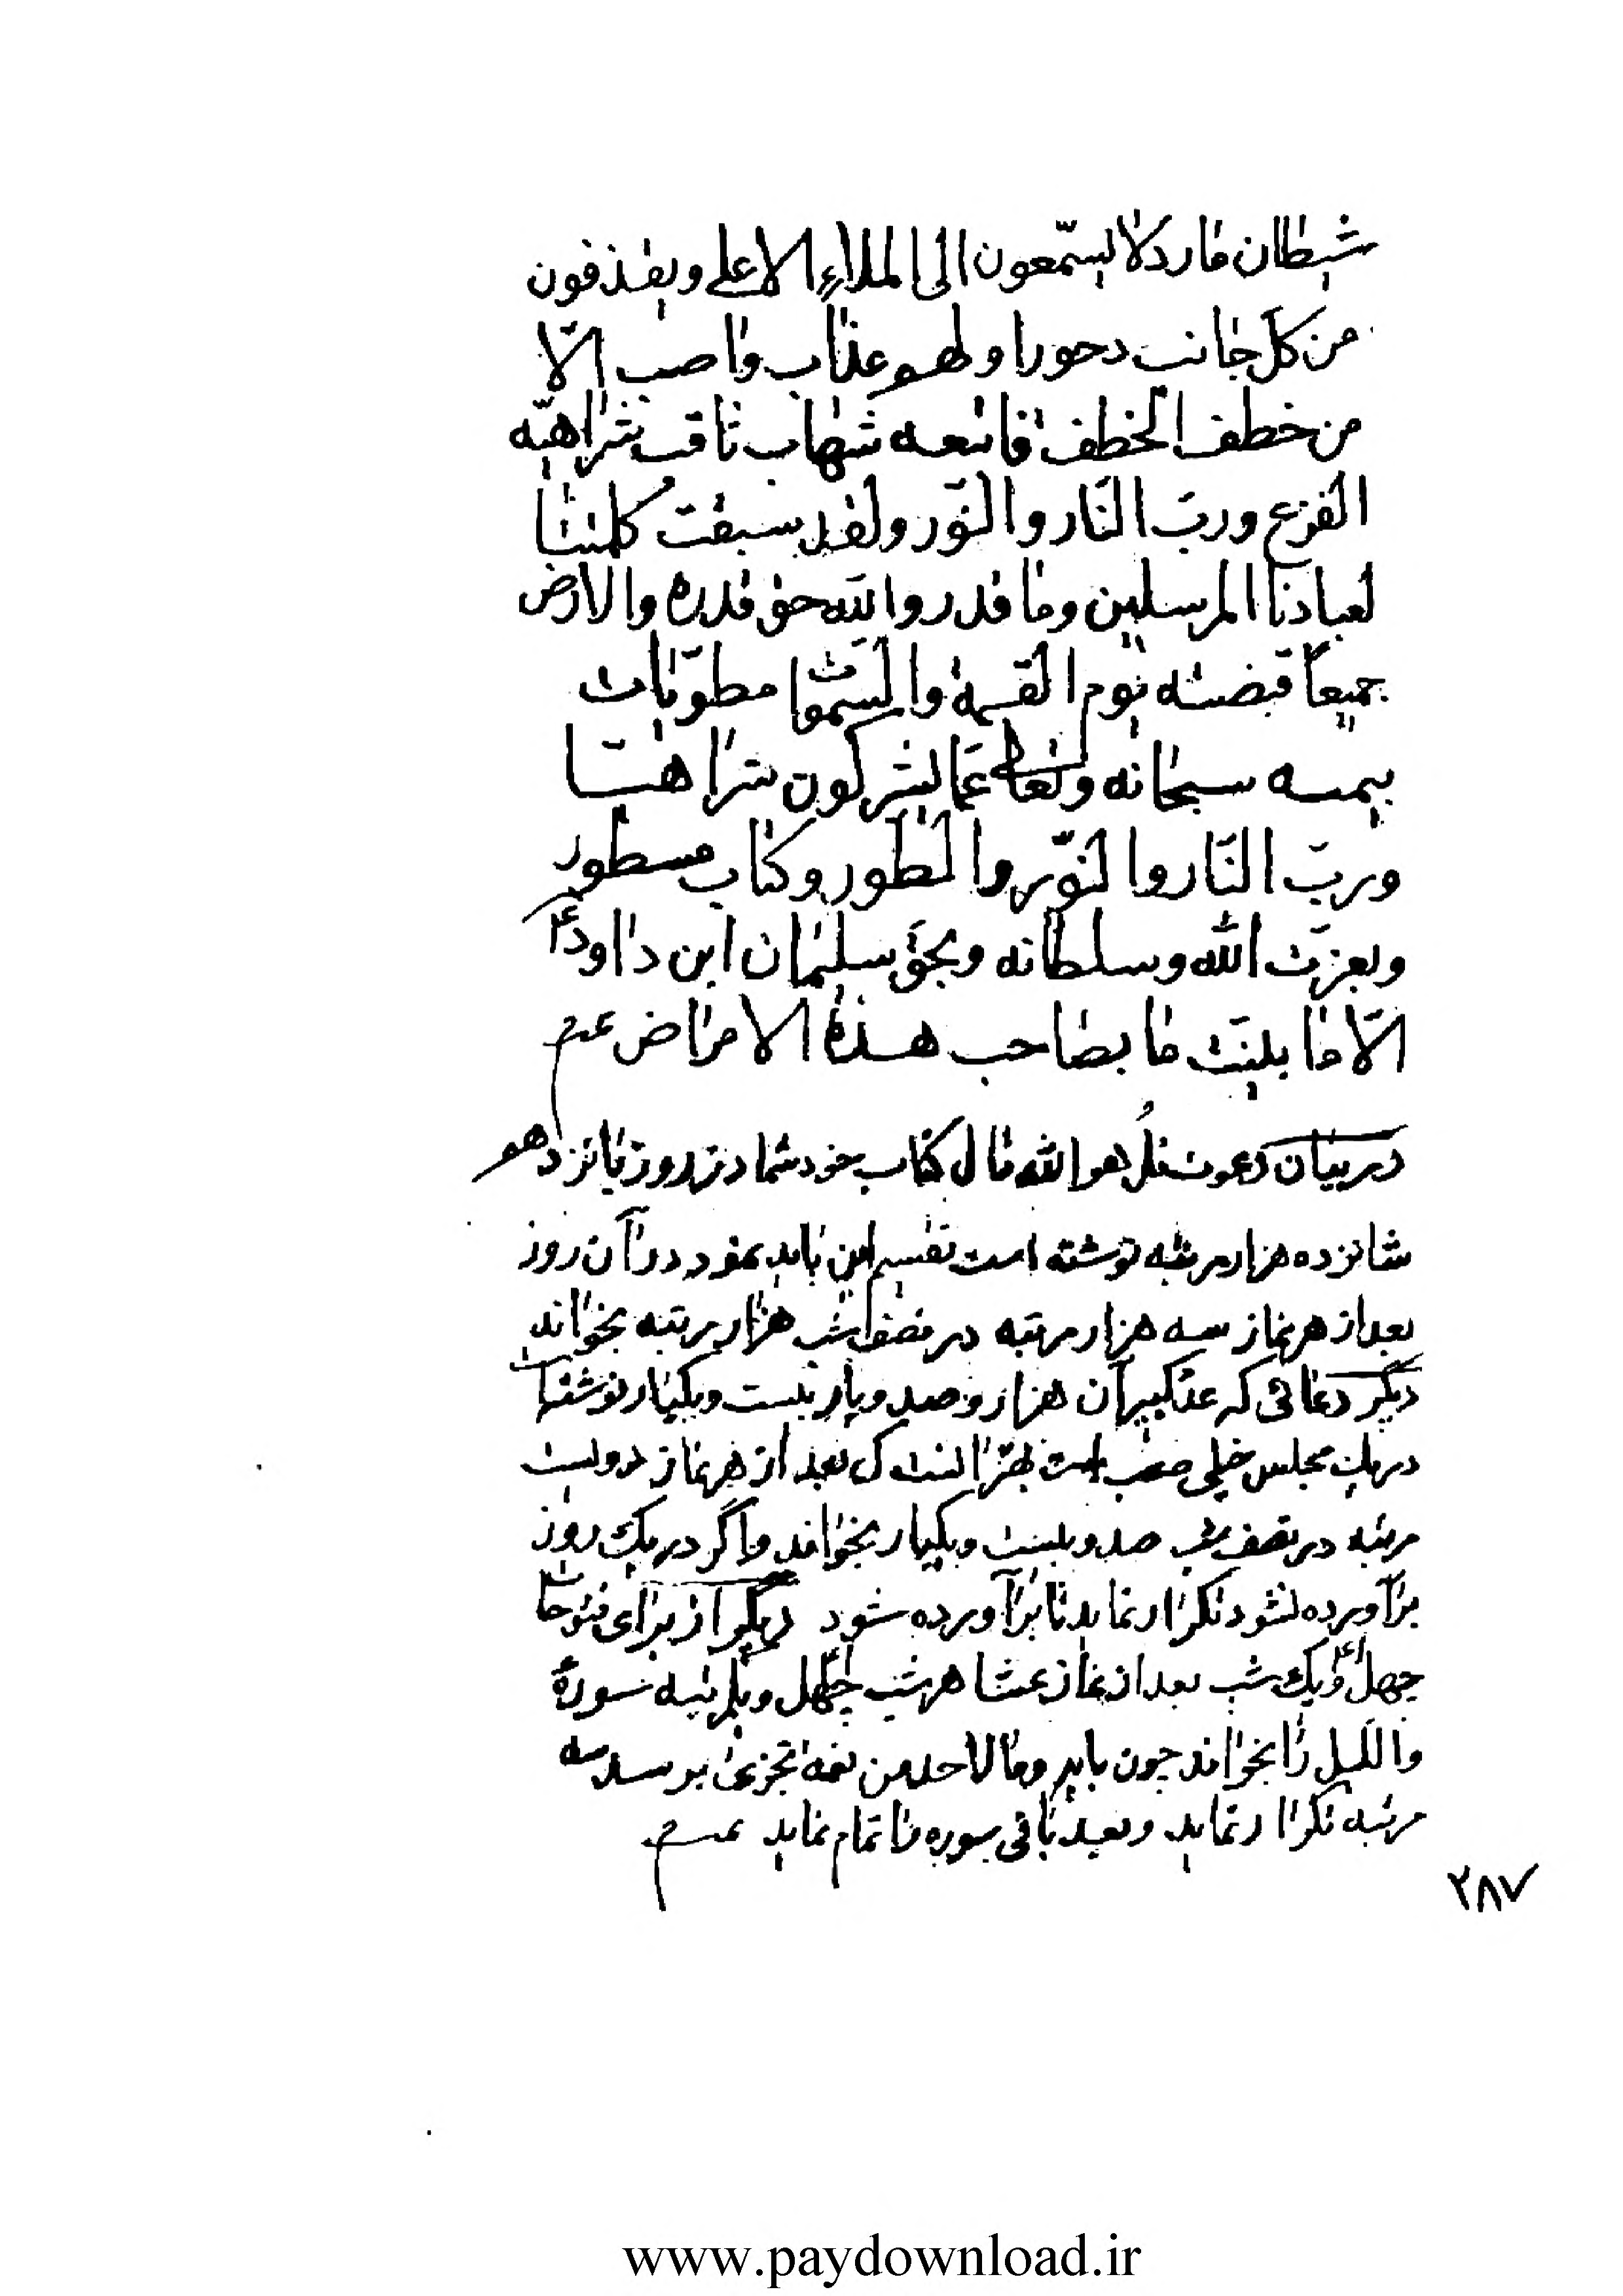 شیطان مارد لا یسّمعون الی الملاءِ الاعلی و یقذفون
من کل جانب دحورا و لهم عذاب واصب الّا
من خطف الخطفة فاتبعه شهاب ثاقب شراهیّه
الفزع و ربّ النّار و النّور و لقد سبقت کلمتنا
لعبادنا المرسلین و ما قدروا الله حق قدره و الارض
جمیعاً قبضته یوم القیمة و السّموات مطوّیات
بیمینه سبحانه و تعالی عمّا یشرکون شراهتا
و ربّ النّار و النّور و الطور و کتاب مسطور
و بعزت الله و سلطانه و بحقّ سلیمان ابن داود ع
الّا ما بلیّت ما بصاحب هذهٔ الامراض عم
در بیان دعوت قُل هو الله مال کتاب خود شما در روز پانزدهم
شانزده هزار مرتبه نوشته است تقسیم این باید نمود در آن روز
بعد از هر نماز سه هزار مرتبه در نصف شب هزار مرتبه بخواند
دیگر دعائی که آن هزار و صد و بیست و یکبار نوشته است
در یک مجلس خیلی صعب است بهتر آنست که بعد از هر نماز دویست
مرتبه در نصف شب صد و بیست و یکبار بخواند و اگر در یک روز
برآورده نشود تکرار نماید تا برآورده شود دیگر از برای فتوحات
چهل و یک شب بعد از نماز عشا هر شب چهل و یکمرتبه سورهٔ
و اللیل را بخواند چون بایه و ما لاحد من نعمة تجزیٰ برسد سه
مرتبه تکرار نماید و بعد باقی سوره را تمام نماید عم
۲۸۷
www.paydownload.ir